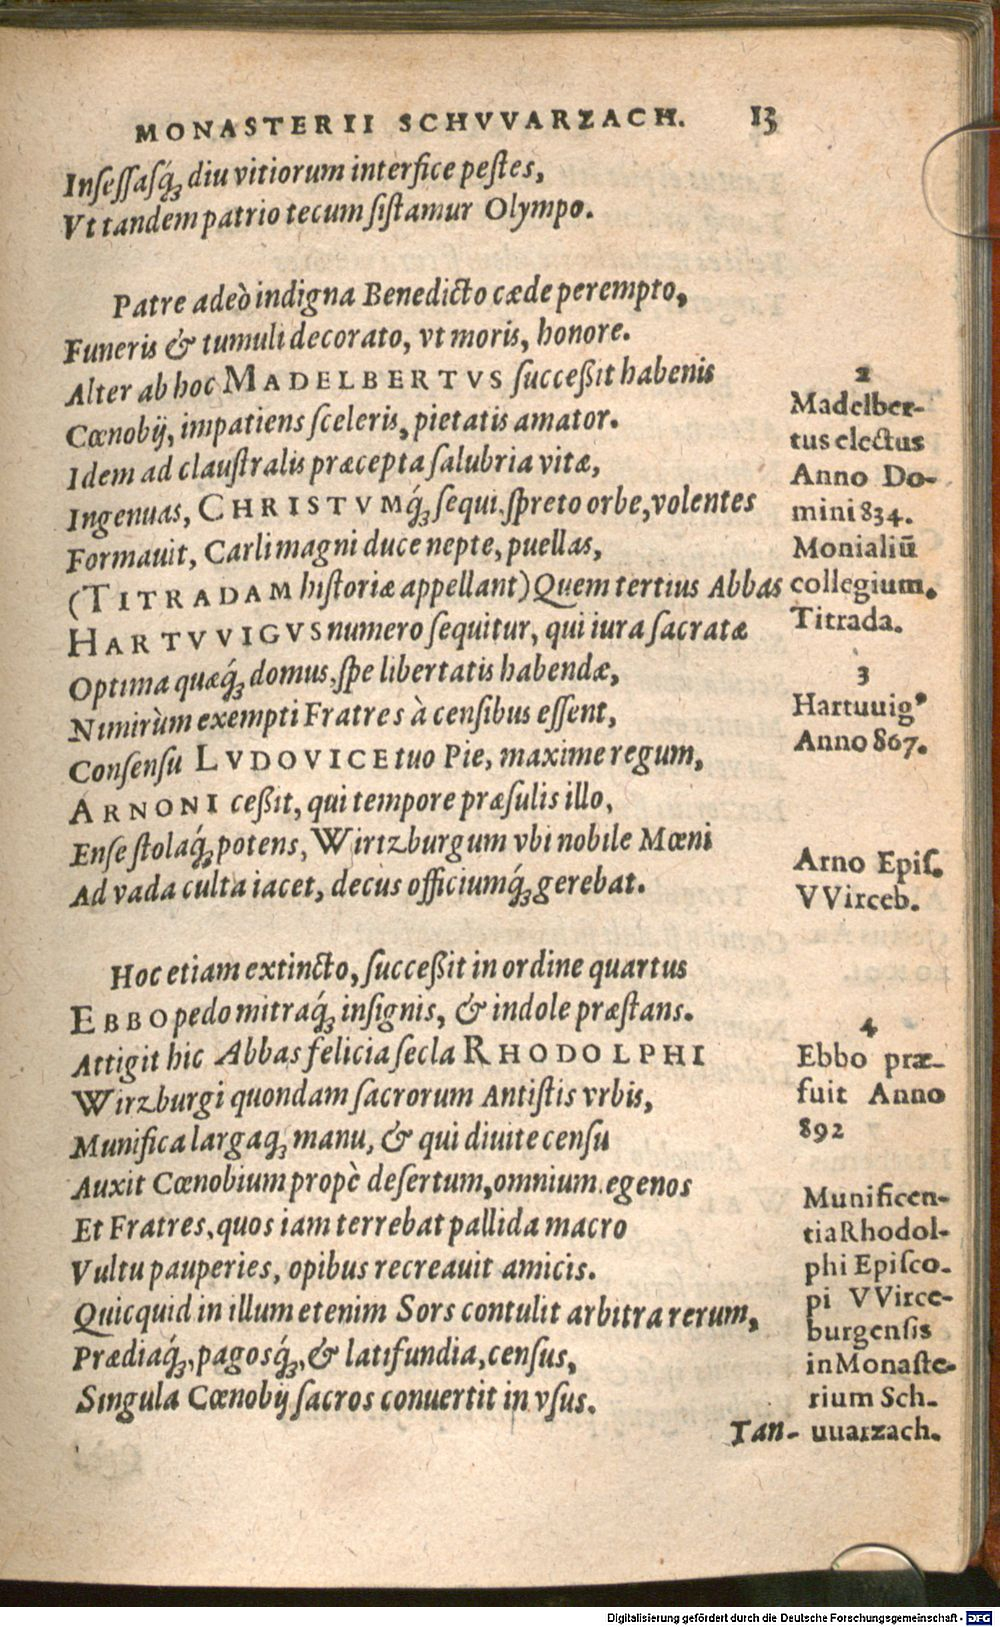 MONASTERII SCHVVARZACH. 13
Inſeſſaſq́ꝫ diu vitiorum interfice peſtes,
Vt tandem patrio tecum ſiſtamur Olympo.
Patre adeò indigna Benedicto cæde perempto,
Funeris & tumuli decorato, vt moris, honore.
Alter ab hoc MADELBERTVS ſucceßit habenis
Cœnobij, impatiens ſceleris, pietatis amator.
Idem ad clauſtralis præcepta ſalubria vitæ,
Ingenuas, CHRISTVMq́ꝫ ſequi ſpreto orbe, volentes
Formauit, Carli magni duce nepte, puellas,
(TITRADAM hiſtoriæ appellant) Quem tertius Abbas
HARTVVIGVS numero ſequitur, qui iura ſacratæ
Optima quæq́ꝫ domus, ſpe libertatis habendæ,
Nimirùm exempti Fratres à cenſibus eſſent,
Conſenſu LVDOVICE tuo Pie, maxime regum,
ARNONI ceßit, qui tempore præſulis illo,
Enſe ſtolaq́ꝫ potens, Wirtzburgum vbi nobile Mœni
Ad vada culta iacet, decus officiumq́ꝫ gerebat.
Hoc etiam extincto, ſucceßit in ordine quartus
EBBO pedo mitraq́ꝫ inſignis, & indole præſtans.
Attigit hic Abbas felicia ſecla RHODOLPHI
Wirzburgi quondam ſacrorum Antiſtis vrbis,
Munifica largaqꝫ manu, & qui diuite cenſu
Auxit Cœnobium propè deſertum, omnium egenos
Et Fratres, quos iam terrebat pallida macro
Vultu pauperies, opibus recreauit amicis.
Quicquid in illum etenim Sors contulit arbitra rerum,
Prædiaq́ꝫ, pagosq́ꝫ, & latifundia, cenſus,
Singula Cœnobij ſacros conuertit in vſus.
Tan-
2
Madelber-
tus electus
Anno Do-
mini 834.
Monialiū
collegium.
Titrada.
3
Hartuuigꝰ
Anno 867.
Arno Epiſ.
VVirceb.
4
Ebbo præ-
fuit Anno
892
Munificen-
tia Rhodol-
phi Epiſco-
pi VVirce-
burgenſis
in Monaſte-
rium Sch-
uuarzach.
Digitalisierung gefördert durch die Deutsche Forschungsgemeinschaft - DFG